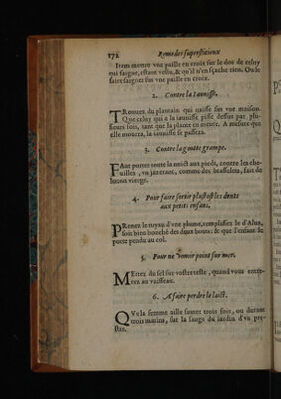 172 Remedes superstitieux
Item mettre vne paille en croix sur le dos de celuy
qui saigne, estant vestu, & qu'il n'en sçache rien. Ou le
faire saigner sur vne paille en croix.
2. Contre la Iaunisse.
TRouuez du plantain qui naisse sur vne maison.
Que celuy qui a la iaunisse pisse dessus par plu-
sieurs fois, tant que la plante en meure. A mesure que
elle mourra, la iaunisse se passera.
3. Contre la goutte grampe.
FAut porter toute la nuict aux pieds, contre les che-
uilles, comme des brasselets, fait de
4. Pour faire sortir plustost les dents
aux petits enfans.
PRenez le tuyau d'vne plume, remplissez le d'
soit bien bouché des deux bouts: & que l'enfant le
porte pendu au col.
5. Pour ne vomir point sur mer.
MEttez du sel sur vostre teste, quand vous entre-
rez au vaisseau.
6. A faire perdre le laict.
QVe la femme aille sauter trois fois, ou durant
trois matins, sur la sauge du iardin d'vn pre-